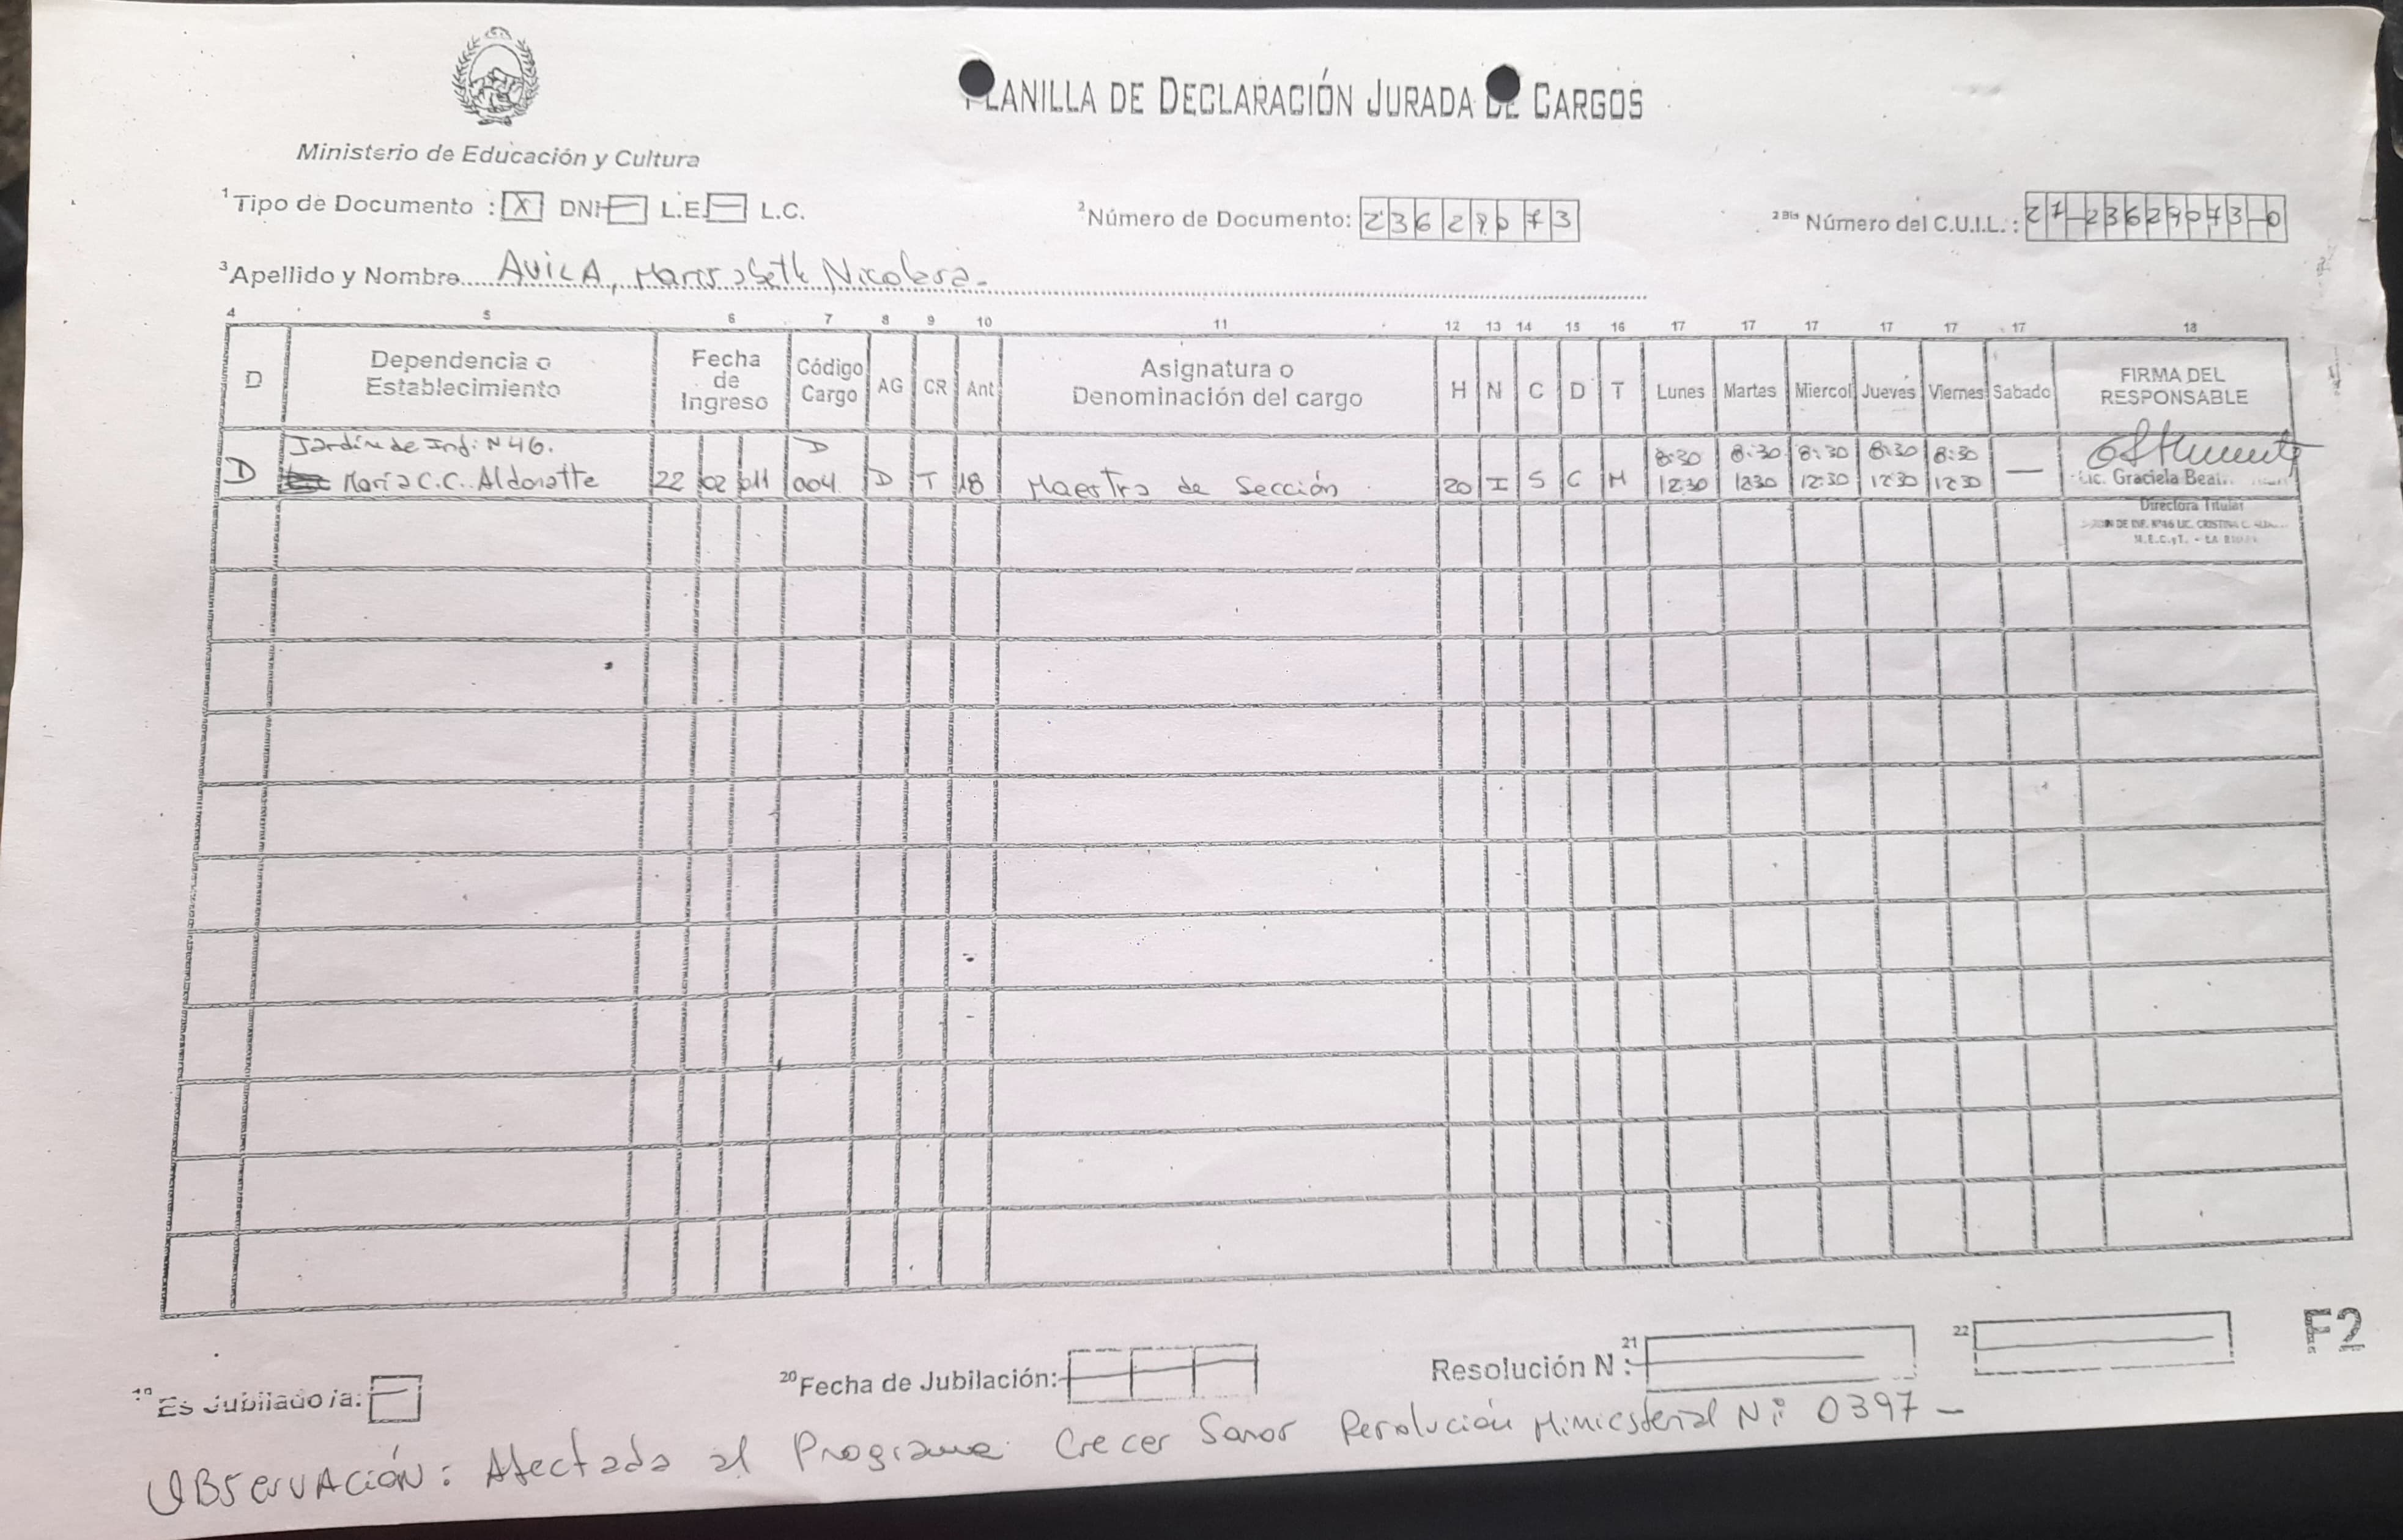 PLANILLA DE DECLARACIÓN JURADA DE CARGOS
Ministerio de Educación y Cultura
1 Tipo de Documento : X DNI L.E. L.C.
2 Número de Documento: 23629073
2 Bis Número del C.U.I.L. : 27-23629073-0
3 Apellido y Nombre AVILA, Nicolasa.
4 5 6 7 8 9 10 11 12 13 14 15 16 17 17 17 17 17 17 18
D Dependencia o Establecimiento Fecha de Ingreso Código Cargo AG CR Ant Asignatura o Denominación del cargo H N C D T Lunes Martes Miercol Jueves Viernes Sabado FIRMA DEL RESPONSABLE
Jardín de Inf: N 46. D 8:30 8:30 8:30 8:30 8:30
D María C.C. Aldonatte 22 02 011 004 D T 18 Maestra de Sección 20 I S C M 12:30 1230 12:30 12:30 12:30 —
Lic. Graciela
Directora Titular
DE INF. Nº46 LIC. CRISTINA C.
M.E.C.yT. - LA
19 Es Jubilado/a:
20 Fecha de Jubilación:
Resolución N : 21
22
F2
OBSERVACIÓN: Afectada al Programa Crecer Sanos Resolución Miniesterial Nº: 0397 —